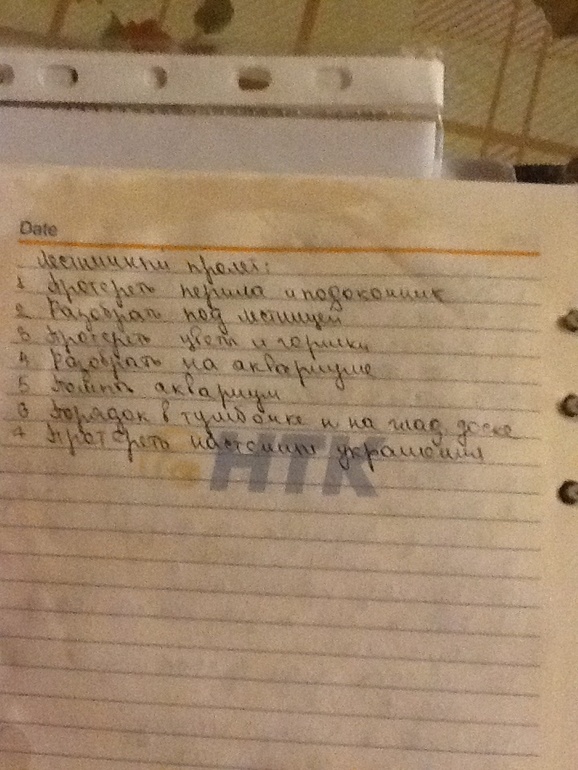 Date
Лестничный пролёт:
1 Протереть перила и подоконник
2 Разобрать под лестницей
3 Протереть цветы и горшки
4 Разобрать на аквариуме
5 Помыть аквариум
6 Порядок в тумбочке и на глад. доске
7 Протереть настенные украшения
НТК